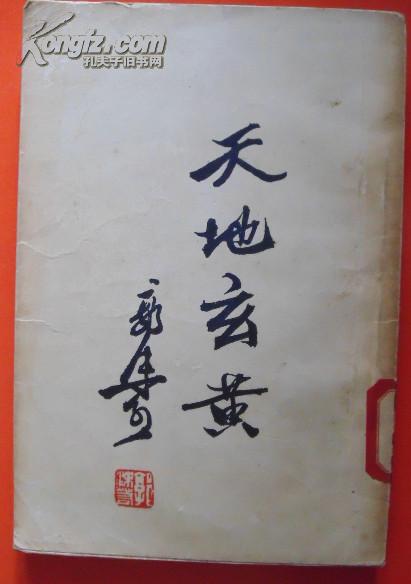 Kongfz.com
孔夫子旧书网
天地玄黄
郭沫若